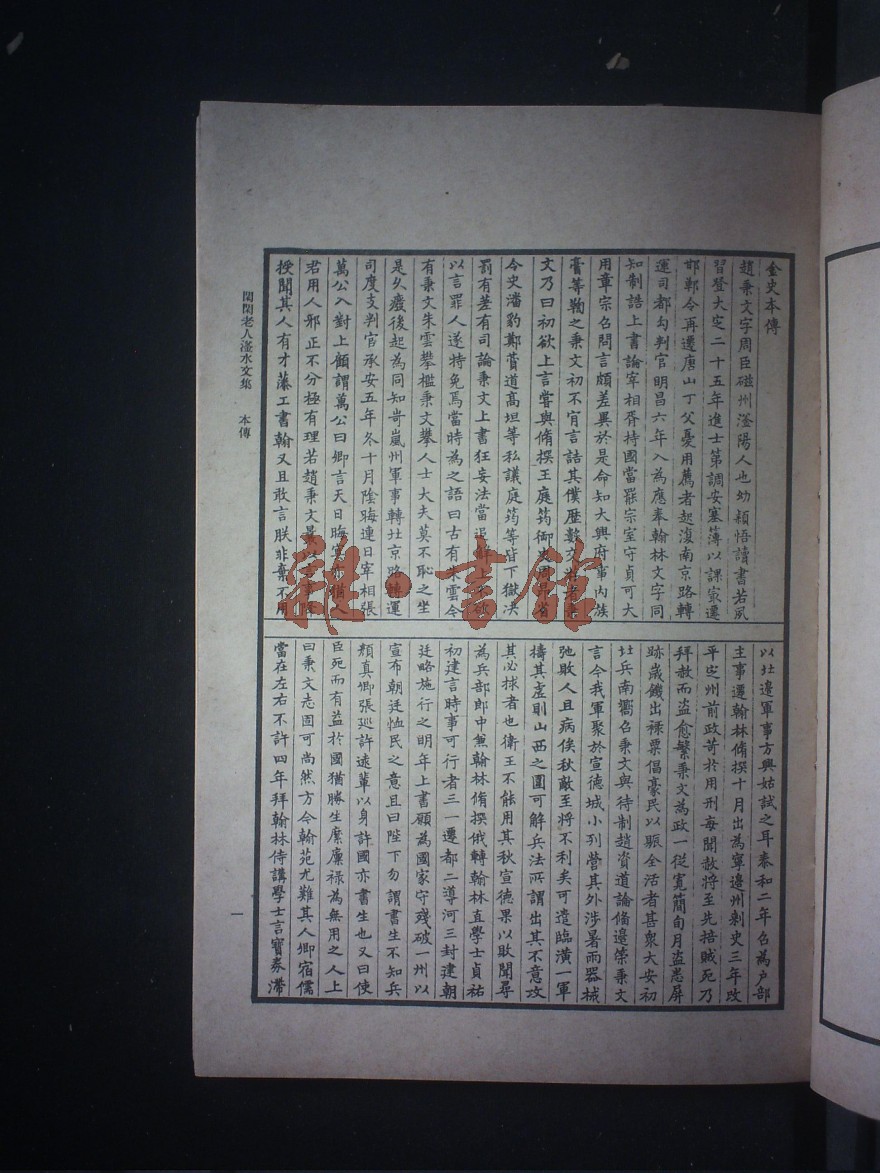 金史本傳
趙秉文字周臣磁州滏陽人也幼穎悟讀書若夙
習登大定二十五年進士第調安塞簿以課㝡遷
邯鄲令再遷唐山丁父憂用薦者起復南京路轉
運司都勾判官明昌六年入為應奉翰林文字同
知制誥上書論宰相胥持國當罷宗室守貞可大
用章宗召問言頗差異於是命知大興府事內族
膏等鞫之秉文初不肯言詰其僕歷數交游者秉
文乃曰初欲上言嘗與脩撰王庭筠御史周昂省
令史潘豹鄭贊道高坦等私議庭筠等皆下獄決
罰有差有司論秉文上書狂妄法當追解上不欲
以言罪人遂特免焉當時為之語曰古有朱雲今
有秉文朱雲攀檻秉文攀人士大夫莫不恥之坐
是久廢後起為同知岢嵐州軍事轉北京路轉運
司度支判官承安五年冬十月陰晦連日宰相張
萬公入對上顧謂萬公曰卿言天日晦冥亦猶人
君用人邪正不分極有理若趙秉文曩以言事降
授聞其人有才藻工書翰又且敢言朕非棄不用
以北邊軍事方興姑試之耳泰和二年召為戶部
主事遷翰林脩撰十月出為寧邊州刺史三年改
平定州前政苛於用刑每聞赦將至先掊賊死乃
拜赦而盜愈繁秉文為政一從寬簡旬月盜悉屏
跡歲饑出祿粟倡豪民以賑全活者甚眾大安初
北兵南嚮召秉文與待制趙資道論備邊策秉文
言今我軍聚於宣德城小列營其外涉暑雨器械
弛敗人且病俟秋敵至將不利矣可遣臨潢一軍
擣其虛則山西之圍可解兵法所謂出其不意攻
其必救者也衛王不能用其秋宣德果以敗聞尋
為兵部郎中兼翰林脩撰俄轉翰林直學士貞祐
初建言時事可行者三一遷都二導河三封建朝
廷略施行之明年上書願為國家守殘破一州以
宣布朝廷恤民之意且曰陛下勿謂書生不知兵
顏真卿張巡許遠輩以身許國亦書生也又曰使
臣死而有益於國猶勝生縻廩祿為無用之人上
曰秉文志固可尚然方今翰苑尤難其人卿宿儒
當在左右不許四年拜翰林侍講學士言寶券滯
閑閑老人滏水文集 本傳
一
雜·書館